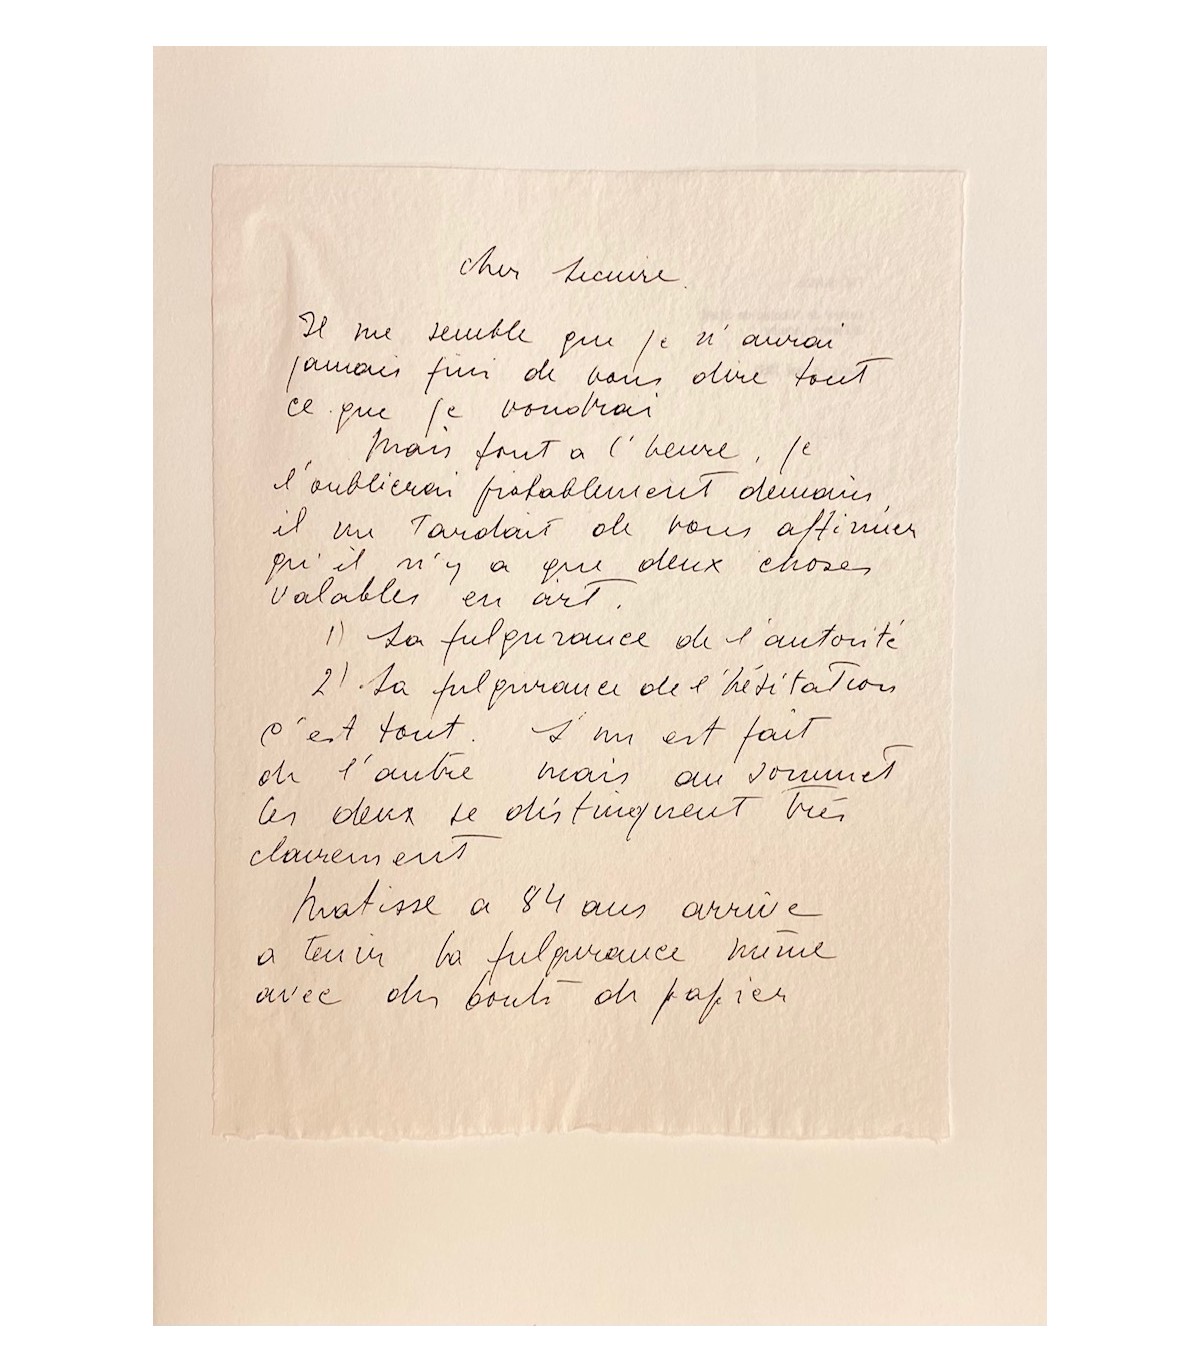 cher Lecuire.
Il me semble que je n'aurai
jamais fini de vous dire tout
ce que je voudrai
Mais tout a l'heure, je
l'oublierai probablement demain,
il me tardait de vous affirmer
qu'il n'y a que deux choses
valables en art.
1) La fulgurance de l'autorité
2) La fulgurance de l'hésitation
c'est tout. L'un est fait
de l'autre mais au sommet
les deux se distinguent très
clairement
Matisse a 84 ans arrive
a tenir la fulgurance même
avec des bouts de papier